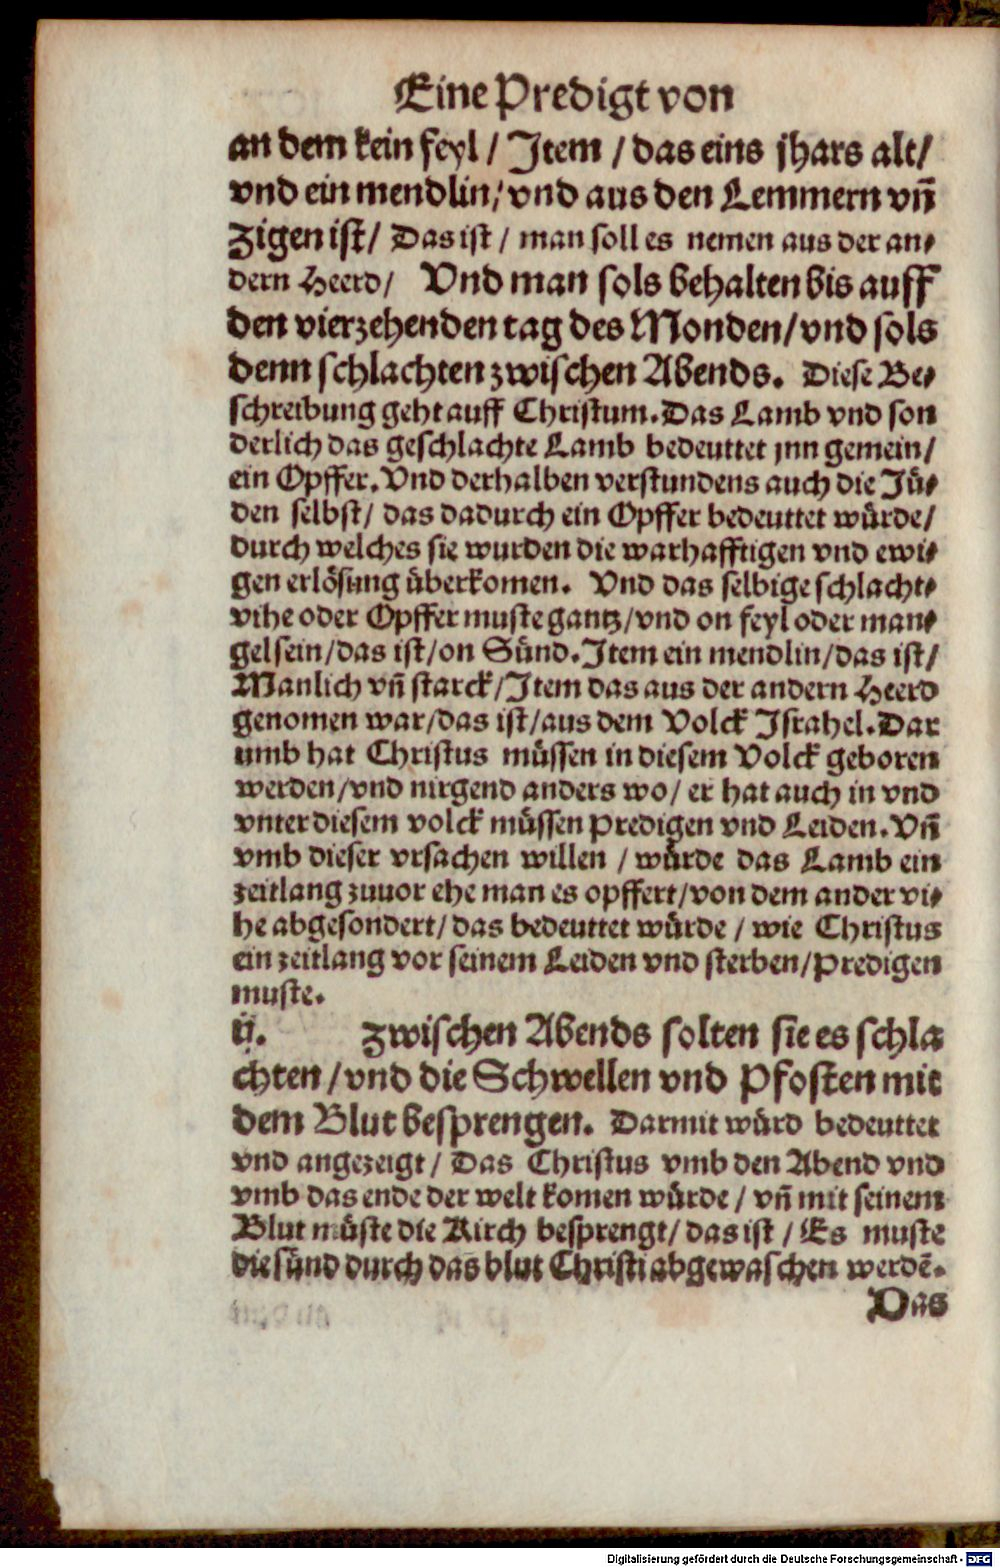 Eine Predigt von
an dem kein feyl / Jtem / das eins jhars alt/
vnd ein mendlin/ vnd aus den Lemmern vñ
Zigen ist/ Das ist / man soll es nemen aus der an⸗
dern Heerd/ Vnd man sols behalten bis auff
den vierzehenden tag des Monden/vnd sols
denn schlachten zwischen Abends. Diese Be⸗
schreibung geht auff Christum. Das Lamb vnd son
derlich das geschlachte Lamb bedeuttet jnn gemein/
ein Opffer. Vnd derhalben verstundens auch die Jü⸗
den selbst/ das dadurch ein Opffer bedeuttet würde/
durch welches sie wurden die warhafftigen vnd ewi⸗
gen erlösung überkomen. Vnd das selbige schlacht⸗
vihe oder Opffer muste gantz/vnd on feyl oder man⸗
gel sein/das ist/on Sünd. Jtem ein mendlin/das ist/
Manlich vñ starck/Jtem das aus der andern Heerd
genomen war/das ist/aus dem Volck Jsrahel. Dar
umb hat Christus müssen in diesem Volck geboren
werden/vnd nirgend anders wo/ er hat auch in vnd
vnter diesem volck müssen predigen vnd Leiden. Vñ
vmb dieser vrsachen willen / würde das Lamb ein
zeitlang zuuor ehe man es opffert/von dem ander vi⸗
he abgesondert/ das bedeuttet würde / wie Christus
ein zeitlang vor seinem Leiden vnd sterben/predigen
muste.
ij. Zwischen Abends solten sie es schla
chten / vnd die Schwellen vnd Pfosten mit
dem Blut besprengen. Darmit würd bedeuttet
vnd angezeigt / Das Christus vmb den Abend vnd
vmb das ende der welt komen würde / vñ mit seinem
Blut müste die Kirch besprengt/ das ist / Es muste
die sünd durch das blut Christi abgewaschen werdē.
Das
Digitalisierung gefördert durch die Deutsche Forschungsgemeinschaft - DFG